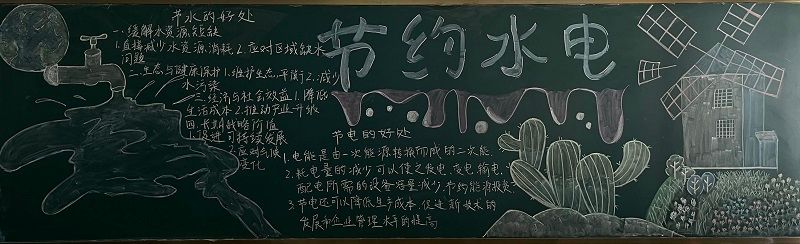 节水的好处
一.缓解水资源短缺
1.直接减少水资源消耗.2.应对区域缺水
问题
二.生态与健康保护1.维护生态平衡2.减少
水污染
三.经济与社会效益1.降低
生活成本2.推动产业升级
四.长期战略价值
1.促进可持续发展
2.应对气候
变化
节约水电
节电的好处
1.电能是由一次能源转换而成的二次能.
2.耗电量的减少可以使之发电,变电,输电.
配电所需的设备容量减少.节约能源投资
3.节电还可以降低生产成本,促进新技术的
发展和企业管理水平的提高